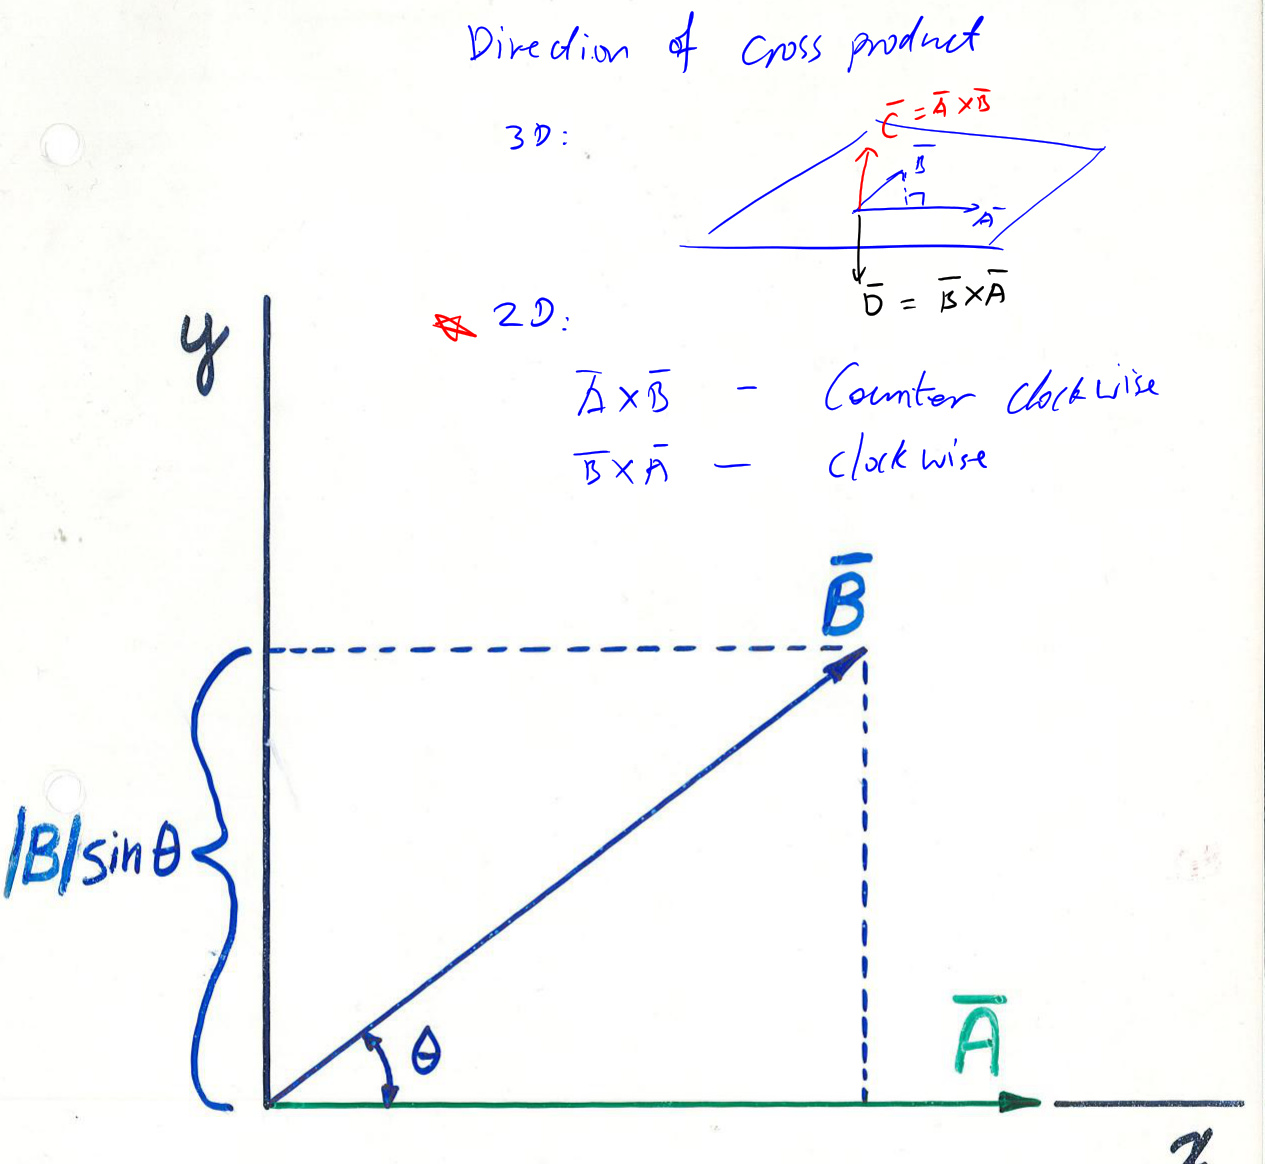 Direction of cross product
3D:
C̅ = A̅ × B̅
B̅
A̅
D̅ = B̅ × A̅
2D:
A̅ × B̅ - Counter clockwise
B̅ × A̅ - clockwise
y
B̅
|B| sin θ
θ
A̅
x